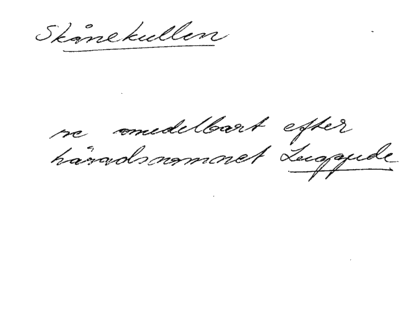 Skånekullen
se omedelbart efter
häradsnamnet Luggude